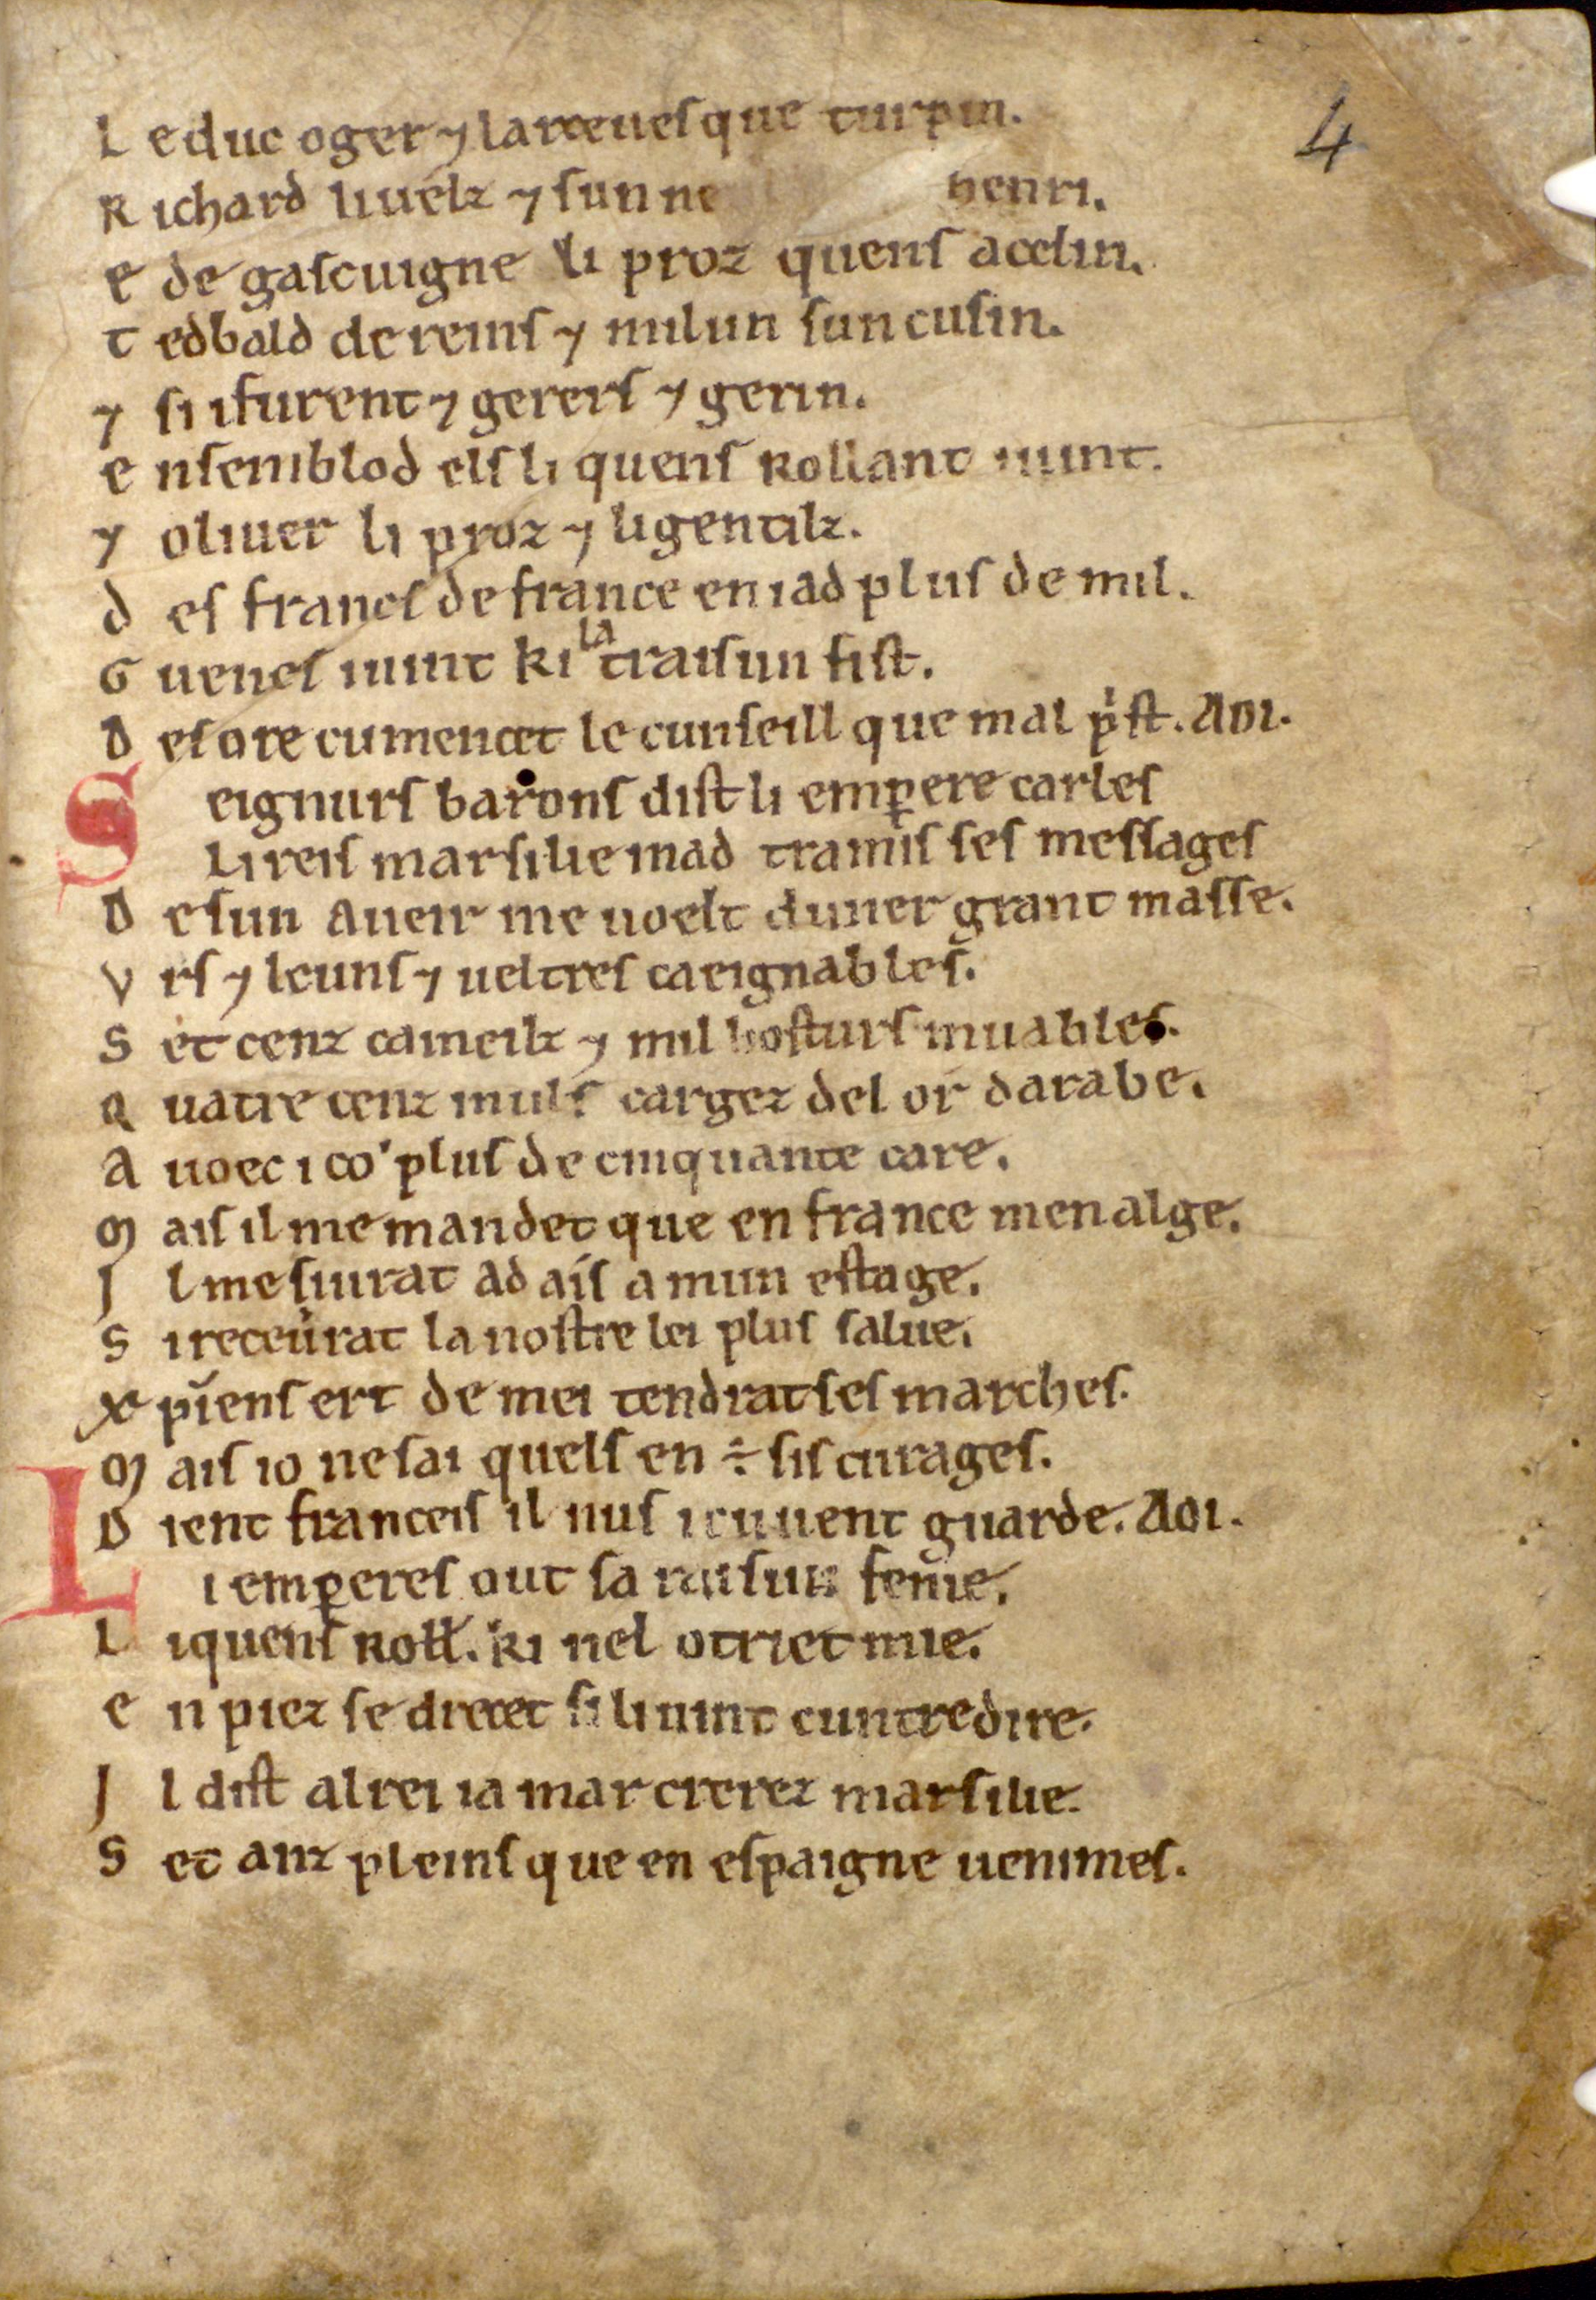 4
L e duc oger ⁊ larceuesque turpin.
R ichard li uelz ⁊ sun ne henri.
E de gascuigne li proz quens acelin.
T edbald de reins ⁊ milun sun cusin.
⁊ si i furent ⁊ gerers ⁊ gerin.
E nsembl od els li quens rollant i uint.
⁊ oliuer li proz ⁊ li gentilz.
D es francs de france en i ad plus de mil.
G uenes i uint ki la traisun fist.
D es ore cumencet le cunseill que mal p̍st. Aoi.
S eignurs barons dist li emꝑere carles
Li reis marsilie mad tramis ses messages
D e sun aueir me uoelt duner grant masse.
V rs ⁊ leuns ⁊ ueltres caeignables.
S et cenz cameilz ⁊ mil hosturs muables.
Q uatre cenz muls cargez del or darabe.
A uoec ico plus de cinquante care.
M ais il me mandet que en france men alge.
I l me siurat ad ais a mun estage.
S i receurat la nostre lei plus salue.
X pīens ert de mei tendrat ses marches.
M ais io ne sai quels en ÷ sis curages.
D ient franceis il nus i cuuent guarde. Aoi.
L i emꝑeres out sa raisun fenie.
L i quens roll̵. ki nel otriet mie.
E n piez se drecet si li uint cuntredire.
I l dist al rei ia mar crerez marsilie.
S et anz pleins que en espaigne uenimes.